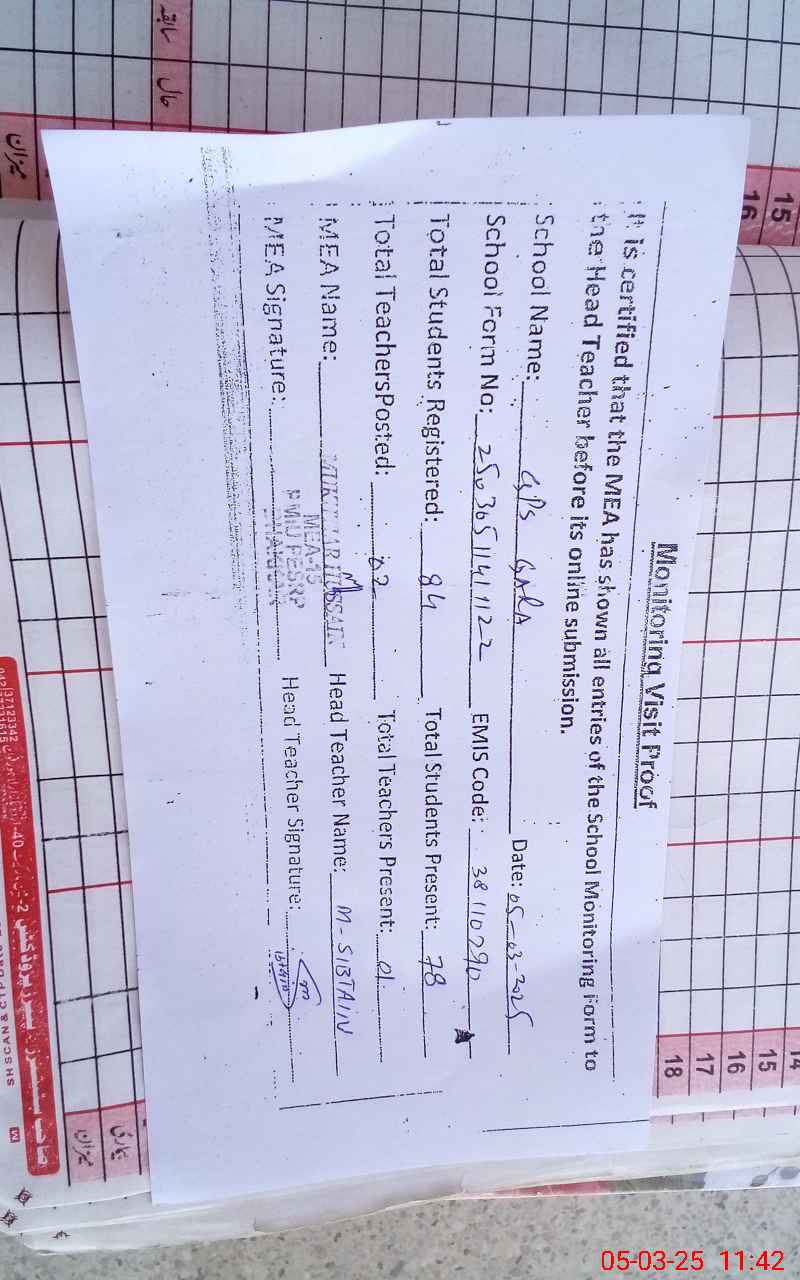 Monitoring Visit Proof
It is certified that the MEA has shown all entries of the School Monitoring Form to
the Head Teacher before its online submission.
School Name: GPS Date: 05-03-2025
School Form No: 2503651141122 EMIS Code: 38110790
Total Students Registered: 84 Total Students Present: 78
Total TeachersPosted: 02 Total Teachers Present: 01
MEA Name: Head Teacher Name: M-SIBTAIN
MEA Signature: Head Teacher Signature:
PMIU PESRP
15
16
14
15
16
17
18
سابقہ
حال
میزان
میزان
042)37123342
SHSCAN &
05-03-25 11:42